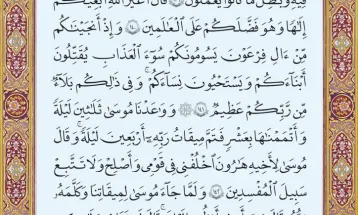 فِيهِ وَبَٰطِلٌ مَّا كَانُوا۟ يَعْمَلُونَ ۝ قَالَ أَغَيْرَ ٱللَّهِ أَبْغِيكُمْ
إِلَٰهًا وَهُوَ فَضَّلَكُمْ عَلَى ٱلْعَٰلَمِينَ ۝ وَإِذْ أَنجَيْنَٰكُم
مِّنْ ءَالِ فِرْعَوْنَ يَسُومُونَكُمْ سُوٓءَ ٱلْعَذَابِ يُقَتِّلُونَ
أَبْنَآءَكُمْ وَيَسْتَحْيُونَ نِسَآءَكُمْ ۚ وَفِى ذَٰلِكُم بَلَآءٌ
مِّن رَّبِّكُمْ عَظِيمٌ ۝ ۞ وَوَٰعَدْنَا مُوسَىٰ ثَلَٰثِينَ لَيْلَةً
وَأَتْمَمْنَٰهَا بِعَشْرٍ فَتَمَّ مِيقَٰتُ رَبِّهِۦٓ أَرْبَعِينَ لَيْلَةً ۚ وَقَالَ
مُوسَىٰ لِأَخِيهِ هَٰرُونَ ٱخْلُفْنِى فِى قَوْمِى وَأَصْلِحْ وَلَا تَتَّبِعْ
سَبِيلَ ٱلْمُفْسِدِينَ ۝ وَلَمَّا جَآءَ مُوسَىٰ لِمِيقَٰتِنَا وَكَلَّمَهُۥ